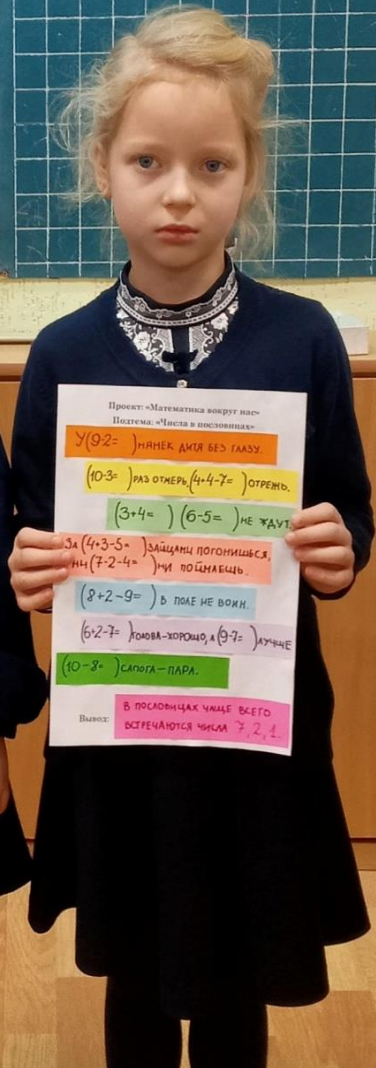 Проект: «Математика вокруг нас»
Подтема: «Числа в пословицах»
У(9-2= )НЯНЕК ДИТЯ БЕЗ ГЛАЗУ.
(10-3= )РАЗ ОТМЕРЬ,(4+4-7= )ОТРЕЖЬ.
(3+4= ) (6-5= )НЕ ЖДУТ.
ЗА(4+3-5= )ЗАЙЦАМИ ПОГОНИШЬСЯ,
НИ(7-2-4= )НИ ПОЙМАЕШЬ.
(8+2-9= )В ПОЛЕ НЕ ВОИН.
(6+2-7= )ГОЛОВА-ХОРОШО, А(9-7= )ЛУЧШЕ
(10-8= )САПОГА-ПАРА.
Вывод:
В ПОСЛОВИЦАХ ЧАЩЕ ВСЕГО
ВСТРЕЧАЮТСЯ ЧИСЛА 7, 2, 1.